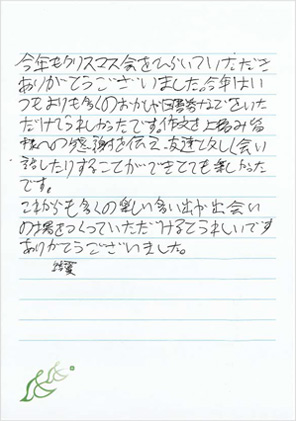 今年もクリスマス会をひらいていただき
ありがとうございました。今年はい
つもよりも多くのおかしや図書券までをいた
だけてうれしかったです。作文を上 み皆
様への感謝を伝え、友達と久し会い
話したりすることができてとても楽しかった
です。
これからも多くの楽しい思い出が出会い
の場をつくっていただけるとうれしいです
ありがとうございました。